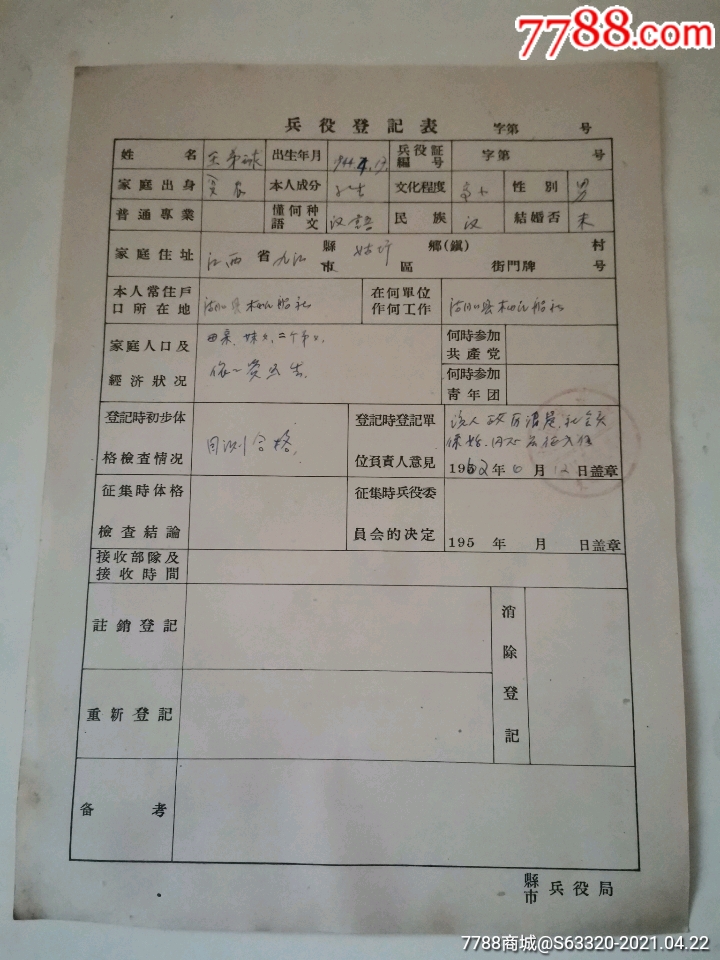 7788.com
兵役登記表 字第 号
姓名 出生年月 1944.4.13. 兵役証編号 字第 号
家庭出身 貧农 本人成分 学生 文化程度 高小 性別 男
普通專業 懂何种語文 汉語 民族 汉 結婚否 未
家庭住址 江西 省 九江 縣市 姑圹 鄉(鎮)區 村 街門牌 号
本人常住戶口所在地 湖口县 船社 在何單位作何工作 湖口县 船社
家庭人口及經济狀况 母亲、妹 二个
何時参加共產党
何時参加青年团
登記時初步体格檢查情况 目測合格
登記時登記單位負責人意見 該人政历清 社会关
1962年6月12日盖章
征集時体格檢查結論
征集時兵役委員会的决定 195 年 月 日盖章
接收部隊及接收時間
註銷登記
消除登記
重新登記
备考
縣市兵役局
7788商城@S63320-2021.04.22